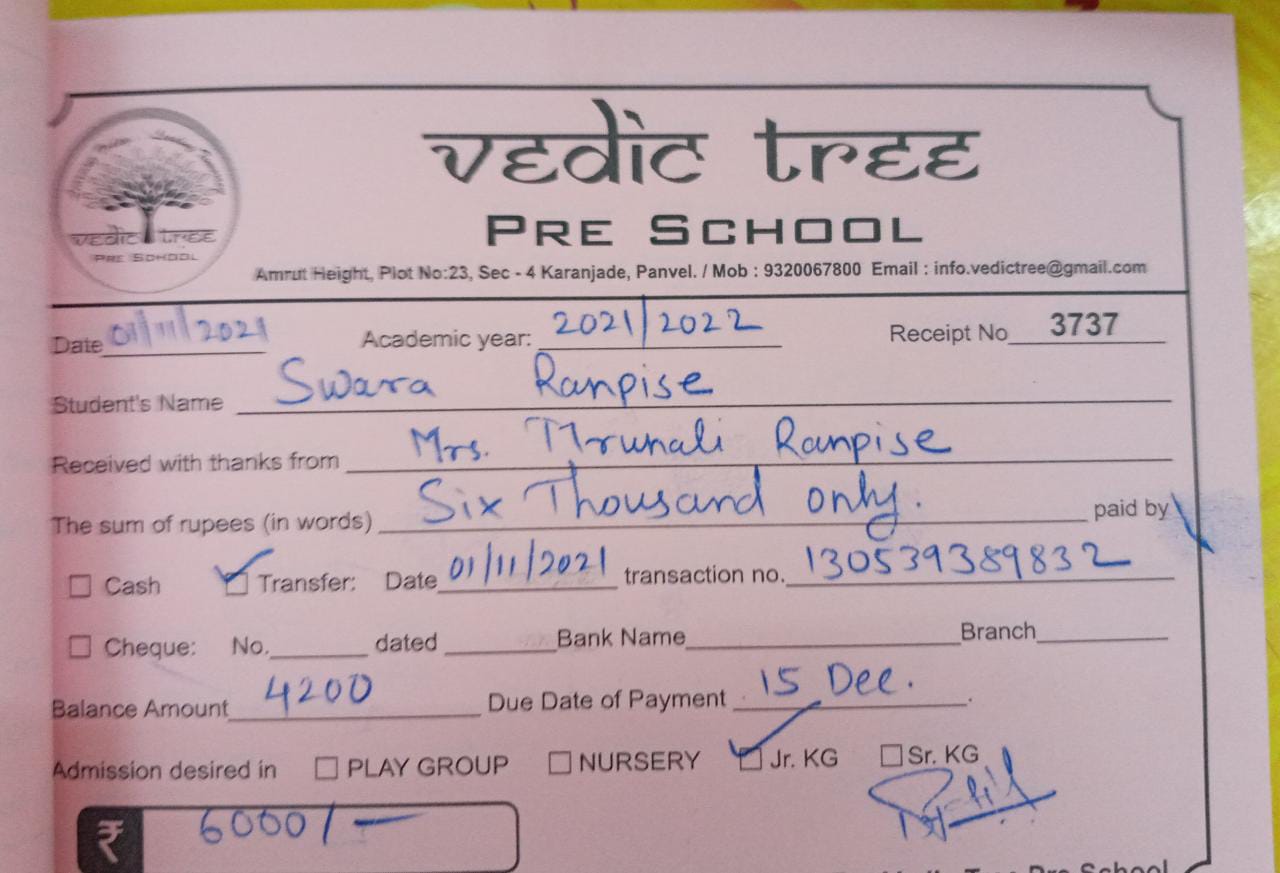 vedic tree
PRE SCHOOL
vedic tree
PRE SCHOOL
Amrut Height, Plot No:23, Sec - 4 Karanjade, Panvel. / Mob : 9320067800 Email : info.vedictree@gmail.com
Date 01/11/2021 Academic year: 2021/2022 Receipt No 3737
Student's Name Swara Ranpise
Received with thanks from Mrs. Mrunali Ranpise
The sum of rupees (in words) Six Thousand only. paid by
Cash Transfer: Date 01/11/2021 transaction no. 130539389832
Cheque: No. dated Bank Name Branch
Balance Amount 4200 Due Date of Payment 15 Dec.
Admission desired in PLAY GROUP NURSERY Jr. KG Sr. KG
₹ 6000/-
Tree Pre School